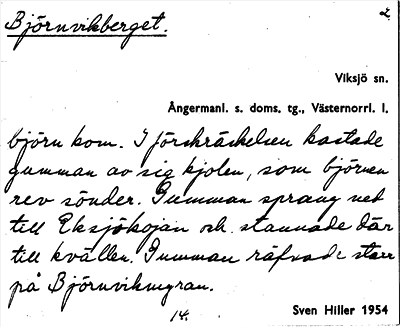 Björnvikberget.
2.
Viksjö sn.
Ångermanl. s. doms. tg., Västernorrl. l.
björn kom. I förskräckelsen kastade
gumman av sig kjolen, som björnen
rev sönder. Gumman sprang ned
till Eksjökojan och stannade där
till kvällen. Gumman räfsade starr
på Björnvikmyran.
14.
Sven Hiller 1954